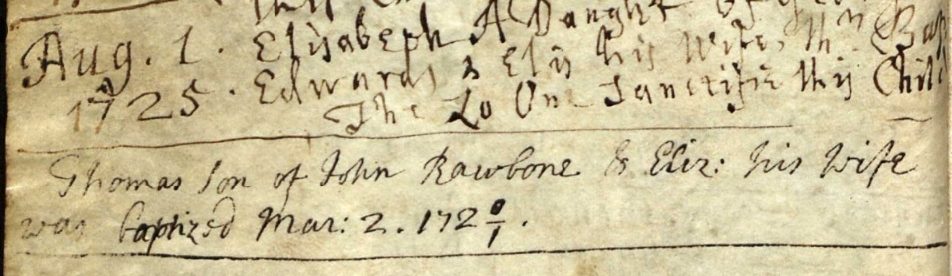 Aug. 1. Elisabeph A Daught of
1725. Edwards & Elis his Wife,
The Lo One Sanctifie this Chil
Thomas Son of John Rawbone & Eliz: his Wife
was baptized Mar: 2. 172 0/1.